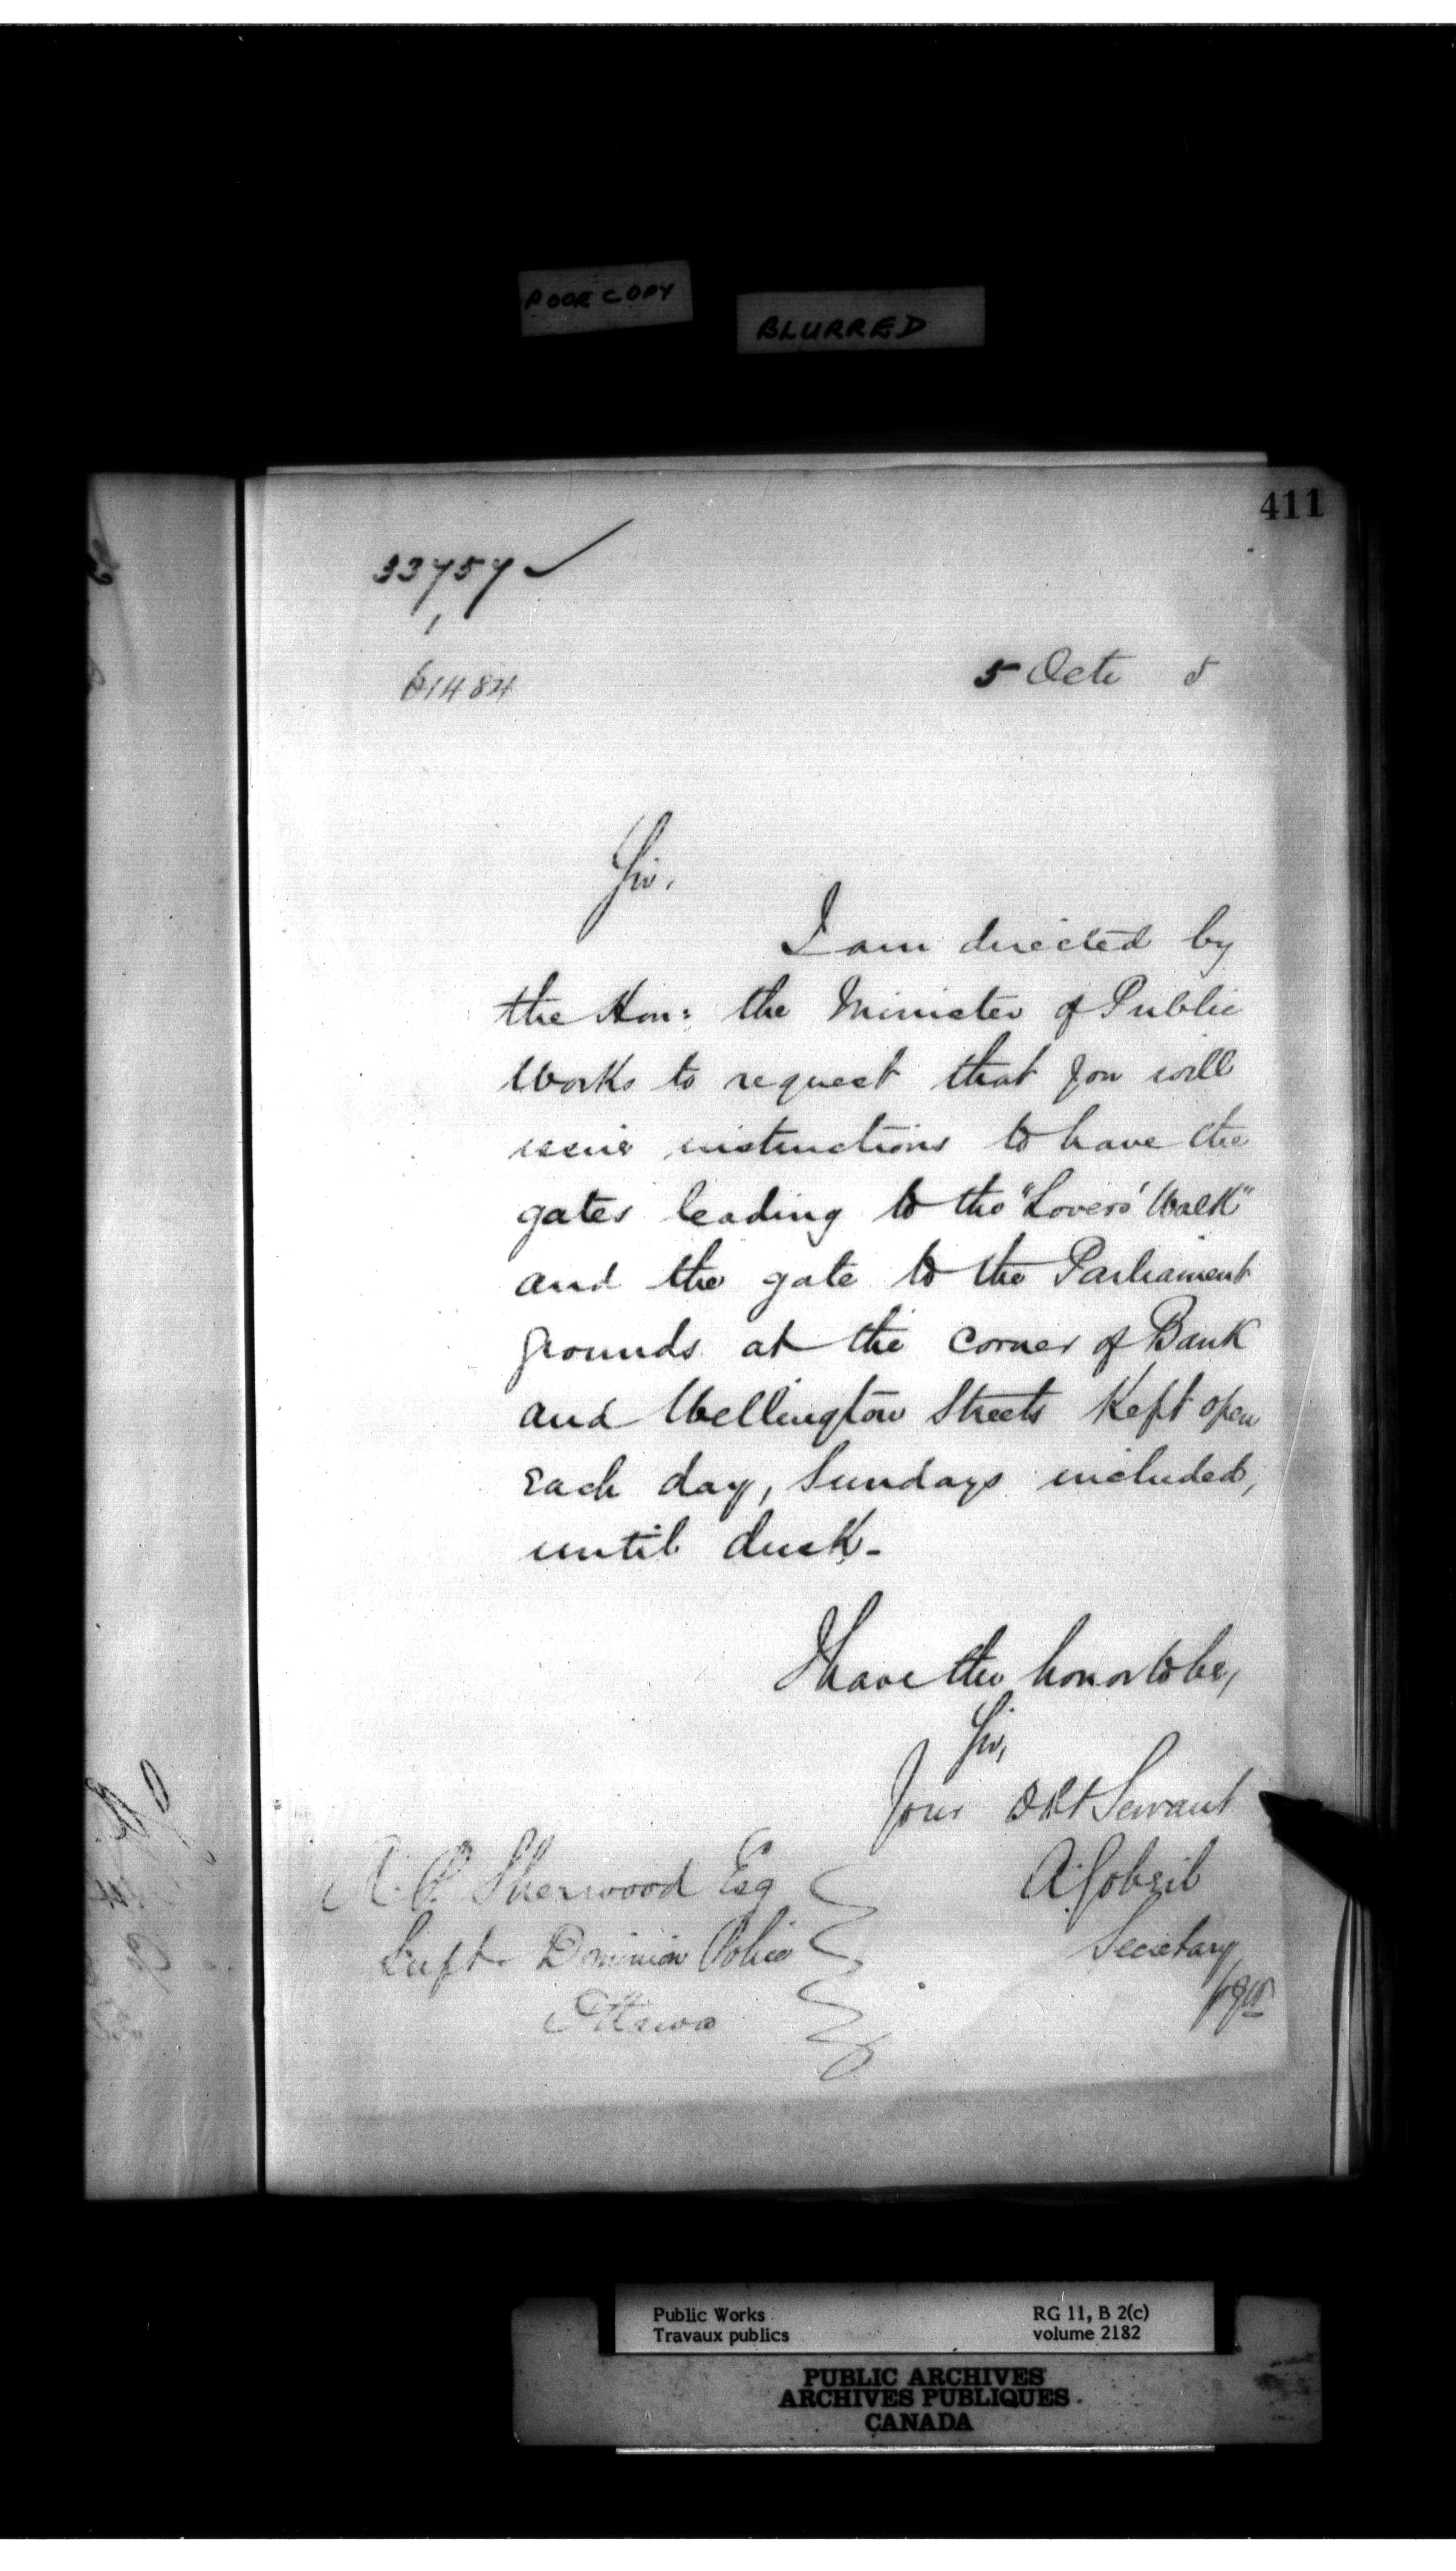 POOR COPY
BLURRED
411
33757
1
61484
5 Octr 5
Sir,
I am directed by
the Hon: the Minister of Public
Works to request that you will
issue instructions to have the
gates leading to the "Lovers' Walk"
and the gate to the Parliament
grounds at the corner of Bank
and Wellington Streets kept open
each day, Sundays included,
until dusk -
I have the honor to be,
Sir,
Your Obt Servant
A. Gobeil
Secretary
A. P. Sherwood Esq
Supt. Dominion Police
Ottawa
Public Works
Travaux publics
RG 11, B 2(c)
volume 2182
PUBLIC ARCHIVES
ARCHIVES PUBLIQUES
CANADA